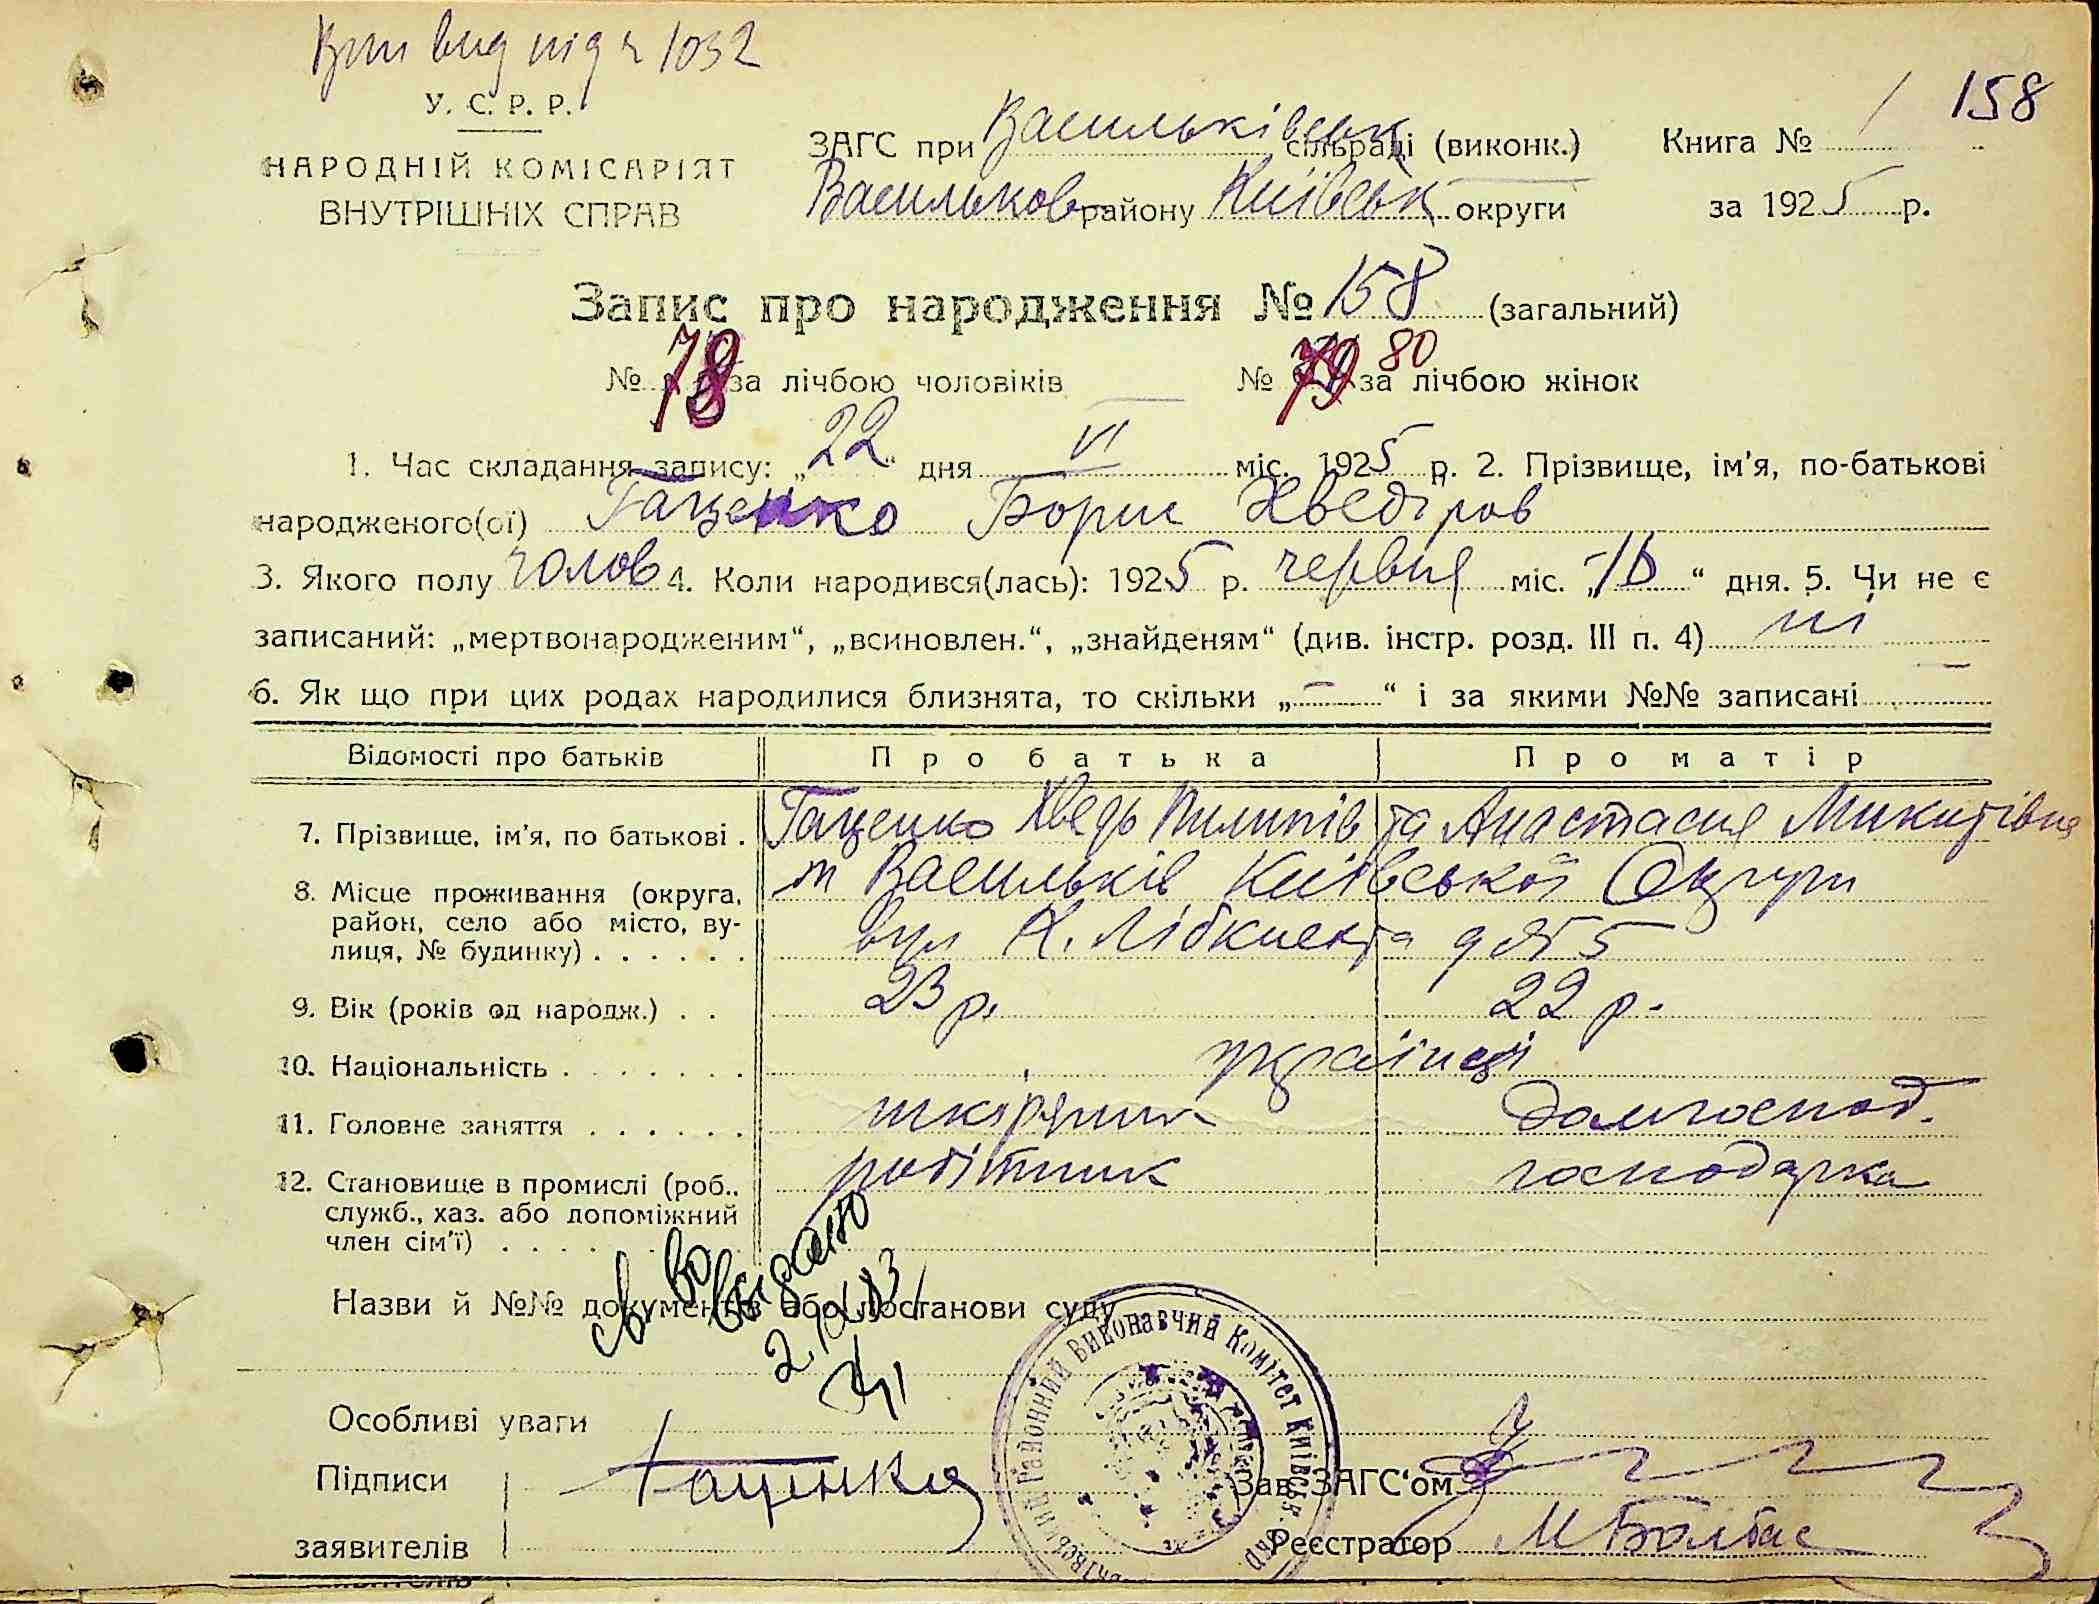 Вип вид під ч 1032
158
У. С. Р. Р.
НАРОДНІЙ КОМІСАРІЯТ
ВНУТРІШНІХ СПРАВ
ЗАГС при Васильківськ сільраді (виконк.)
Васильков району Київськ округи
Книга № 1
за 1925 р.
Запис про народження № 158 (загальний)
№ 78 за лічбою чоловіків
№ 79 80 за лічбою жінок
1. Час складання запису: „22“ дня VI міс. 1925 р. 2. Прізвище, ім'я, по-батькові
народженого(ої) Гаценко Борис Хведіров
3. Якого полу чолов 4. Коли народився(лась): 1925 р. червня міс. „ “ дня. 5. Чи не є
записаний: „мертвонародженим“, „всиновлен.“, „знайденям“ (див. інстр. розд. III п. 4) ні
6. Як що при цих родах народилися близнята, то скільки „—“ і за якими №№ записані —
Відомості про батьків Про батька Про матір
7. Прізвище, ім'я, по батькові . Гаценко Хведь Пилипів та Анастасия Микитівна
8. Місце проживання (округа, м Васильків Київської Округи
район, село або місто, ву- вул К. Лібкнехта 5
лиця, № будинку) . . . . . .
9. Вік (років од народж.) . . 23 р. 22 р.
10. Національність . . . . . . . українці
11. Головне заняття . . . . . . шкіряник домгоспод.
12. Становище в промислі (роб., робітник господарка
служб., хаз. або допоміжний
член сім'ї) . . . .
Св во выдано
Назви й №№ документів або постанови суду
Районний Виконавчий Комітет Київськ.
Особливі уваги
Підписи Гаценко Зав. ЗАГС'ом
заявителів Реєстратор М Болбас